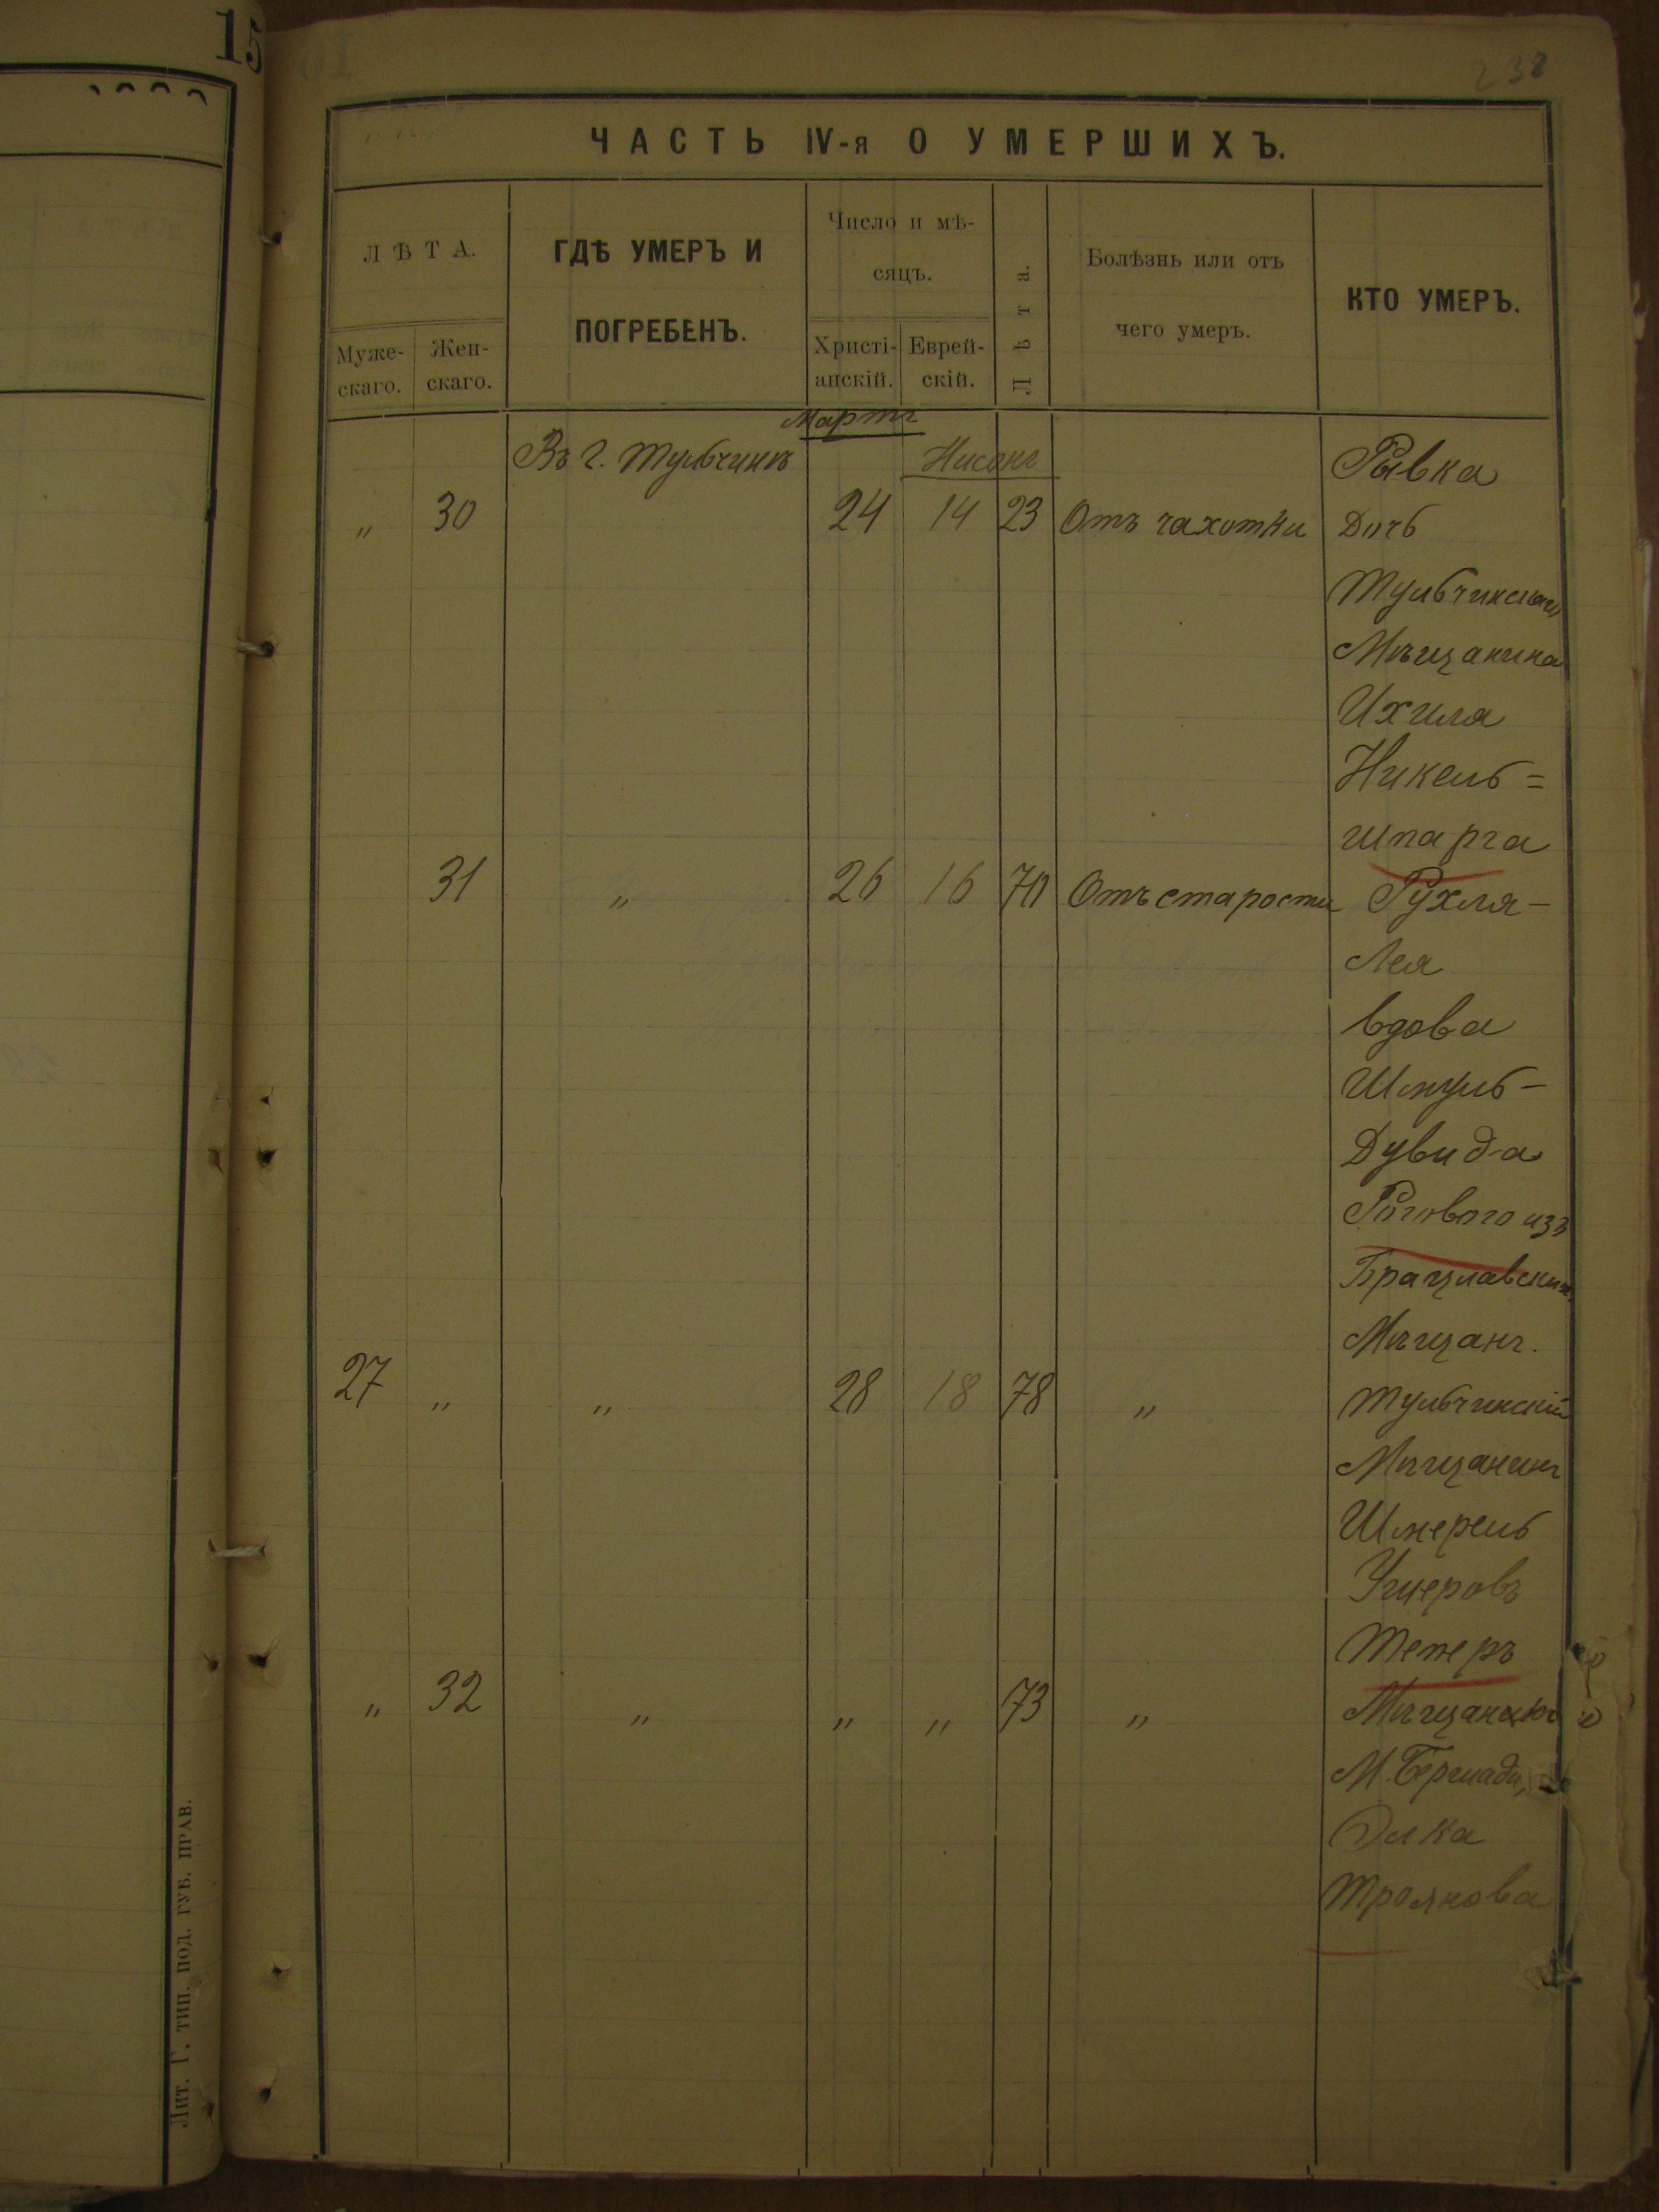 15
238
ЧАСТЬ IV-я О УМЕРШИХЪ.
ЛѢТА.
Муже-
скаго.
Жен-
скаго.
ГДѢ УМЕРЪ И
ПОГРЕБЕНЪ.
Число и мѣ-
сяцъ.
Христі-
анскій.
Еврей-
скій.
Лѣта.
Болѣзнь или отъ
чего умеръ.
КТО УМЕРЪ.
Мартъ
Въ г. Тульчинѣ Нисонъ Рывка
„ 30 24 14 23 Отъ чахотки Дочь
Тульчинскаго
Мѣщанина
Ихиля
Никель=
шпарга
31 „ 26 16 70 Отъ старости Рухля-
Лея
вдова
Шмуль-
Дувида
Рогового изъ
Брацлавских
Мѣщанъ.
27 „ „ 28 18 78 „ Тульчинскій
Мѣщанинъ
Шмерель
Ушеровъ
„ 32 „ „ „ 73 „
М. Бершади,
Элка
Троянова
Лит. Г. тип. под. губ. прав.